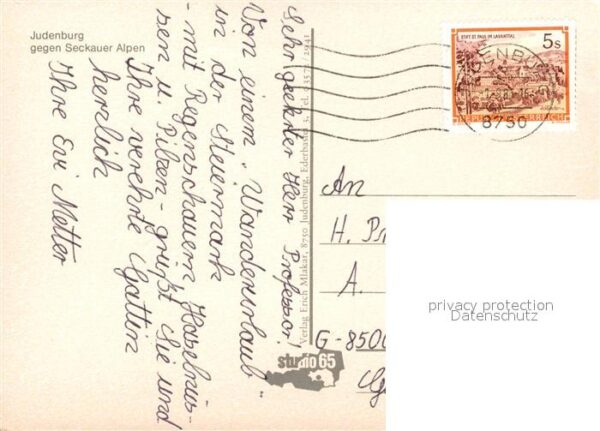 Judenburg
gegen Seckauer Alpen
Sehr geehrter Herr Professor!
Von einem "Wanderurlaub"
in der Steiermark
- mit Regenschauern, Haselnüs-
sen u. Pilzen - grüßt Sie und
Ihre verehrte Gattin
herzlich
Ihre Evi Metter
Verlag Erich Mlakar, 8750 Judenburg, Ederbastei 3, Tel. 03572/2941
studio 65
STIFT ST. PAUL IM LAVANTTAL
5s
REPUBLIK ÖSTERREICH
JUDENBURG
8750
An
H. Pr
A.
G-8500
privacy protection
Datenschutz